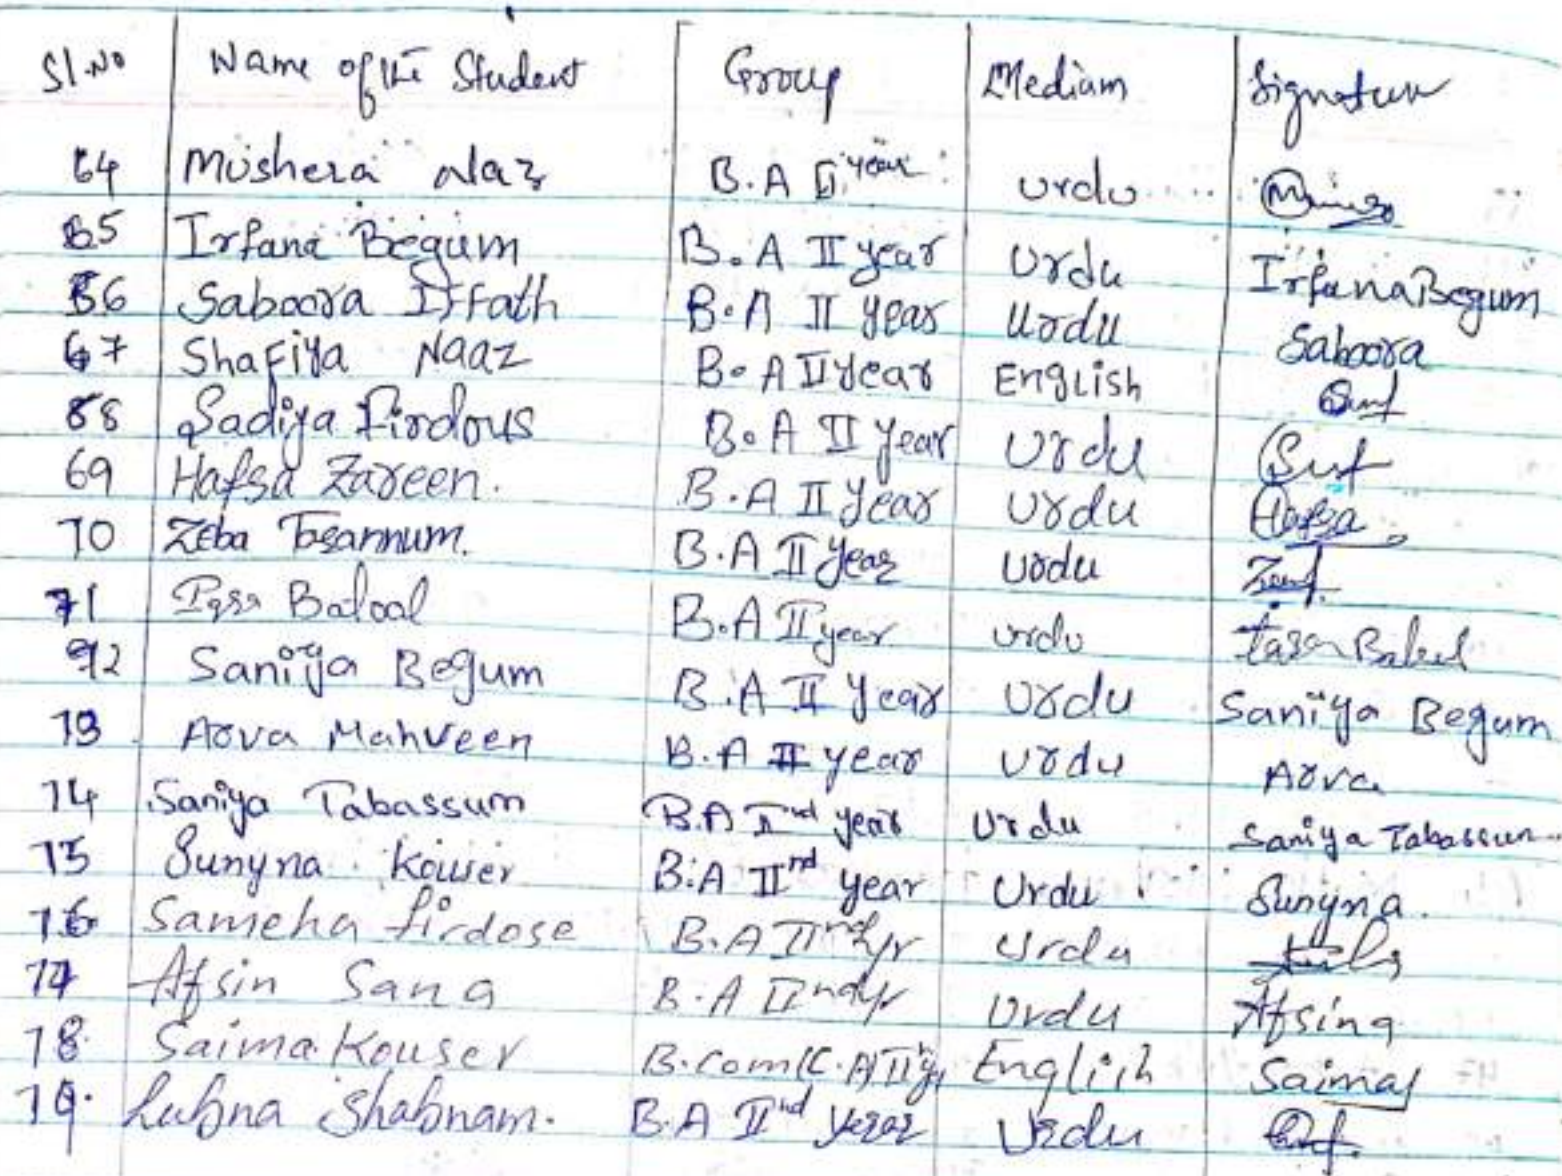 Sl.No Name of the Student Group Mediam Signature
64 Mushera Naz B.A II year urdu
65 Irfana Begum B.A II year Urdu Irfana Begum
66 Saboora Iffath B.A II year Urdu Saboora
67 Shafiya Naaz B.A II Year English
68 Sadiya Firdous B.A II Year Urdu
69 Hafsa Zareen. B.A II Year Urdu Hafsa
70 Zeba Tasannum. B.A II Year Urdu
71 B.A II year urdu
72 Saniya Begum B.A II Year Urdu Saniya Begum
73 Arva Mahveen B.A II year Urdu Arva
74 Saniya Tabassum B.A IInd year Urdu Saniya Tabassum
75 Sunyna Kouser B.A IInd year Urdu Sunyna.
76 Sameha firdose B.A IInd yr Urdu
77 Afsin Sana B.A IInd yr Urdu Afsina
78. Saima Kouser B.com(C.A) II yr English Saima
79. Lubna Shabnam. B.A IInd year Urdu